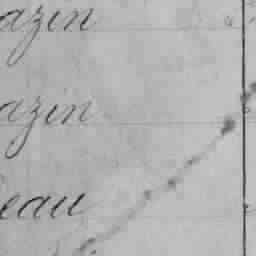 azin
azin
eau